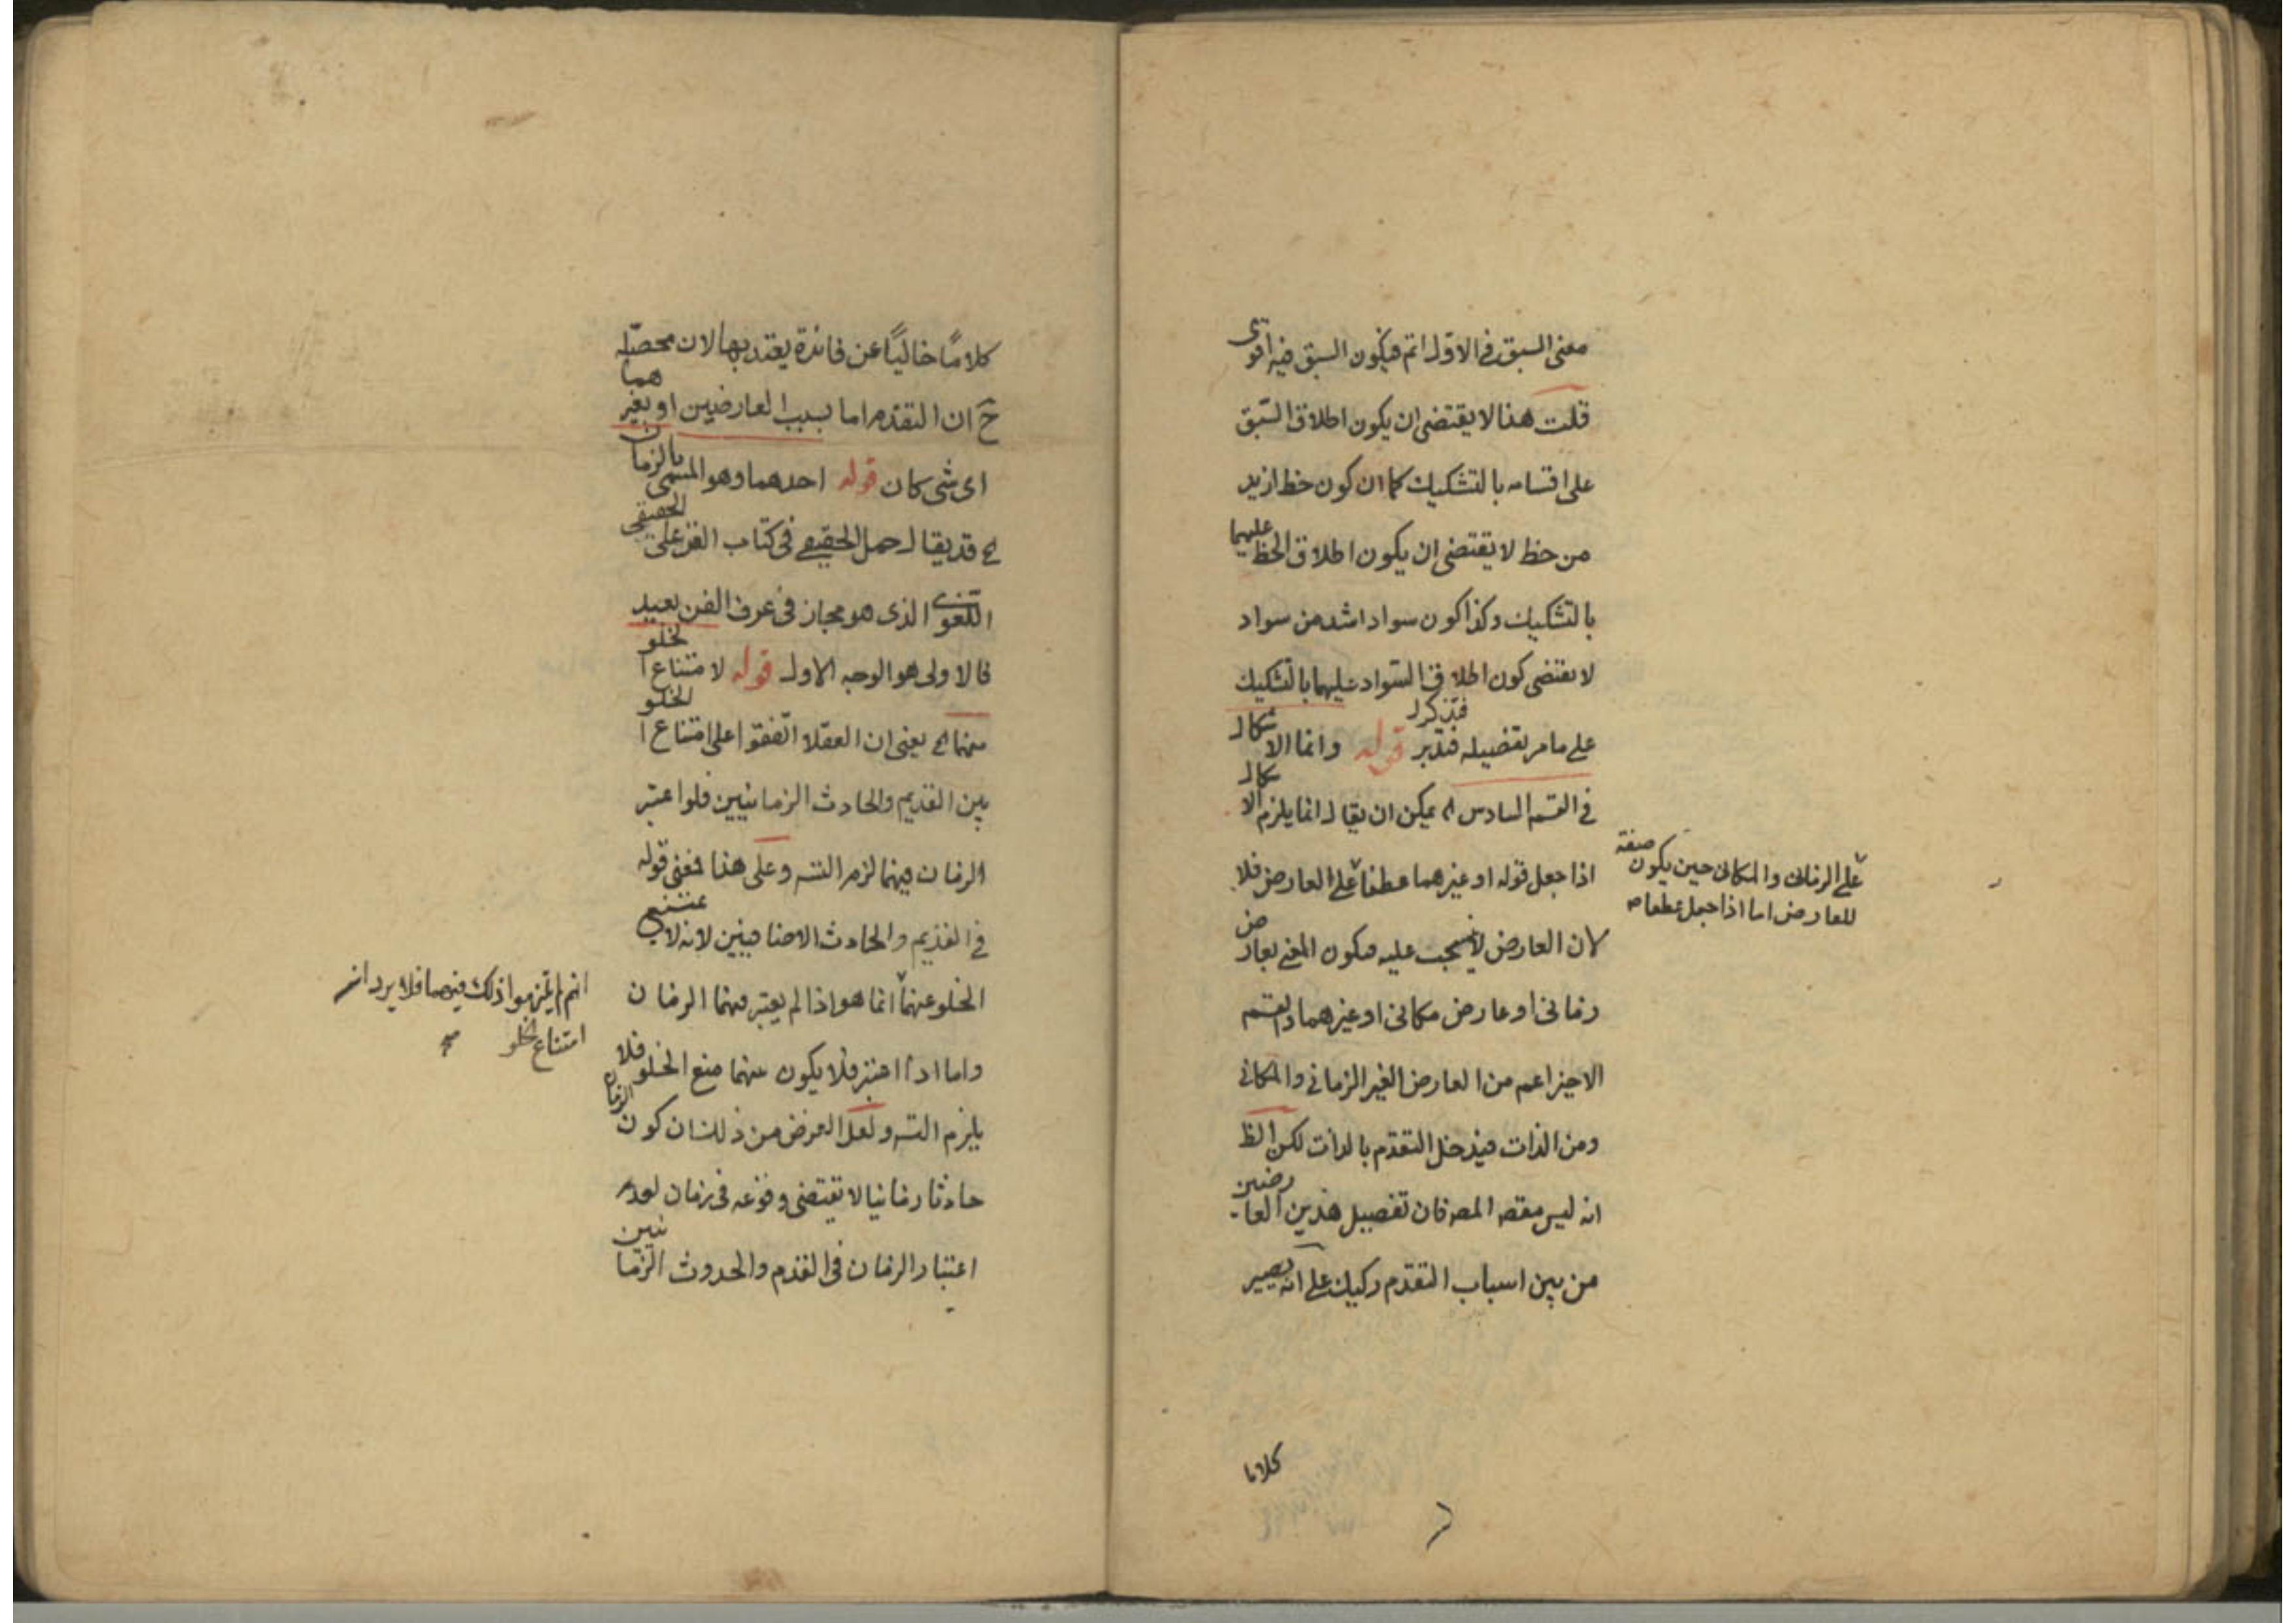 معنى السبق في الاول اتم فيكون السبق فيه اقوى
قلت هذا لا يقتضى ان يكون اطلاق السّبق
على اقسامه بالتشكيك كما ان كون خط ازيد
من خط لا يقتضى ان يكون اطلاق الخط عليهما
بالتشكيك وكذا كون سواد اشد من سواد
لا يقتضى كون اطلاق السّواد عليهما بالتشكيك
على ما مر تفصيله فتدبر فتذكر قوله وانما الاشكال
في القسم السادس اه يمكن ان يقال انما يلزم الاشكال
اذا جعل قوله او غيرهما عطفا على العارض فلا
لان العارض لا ينسحب عليه فيكون المعنى بعارض
زمانى او عارض مكانى او غيرهما والقسم
الاخير اعم من العارض الغير الزمانى والمكانى
ومن الذات فيدخل التقدّم بالذات لكن الظ
انه ليس مقصد المصه فان تفصيل هذين العارضين
من بين اسباب التقدّم ركيك على انه يصير
على الزمانى والمكانى حين يكون صفة
للعارض اما اذا جعل عطفا
كلاما
كلامًا خاليًا عن فائدة يعتد بها لان محصّله
ح ان التقدّم اما بسبب العارضين او بغيرهما
اى شى كان قوله احدهما وهو المسمى بالزمان
الحقيقى اه قد يقال حمل الحقيقى فى كتاب الفن على
اللّغوى الذى هو مجاز فى عرف الفن بعيد
فالاولى هو الوجه الاول قوله لامتناع الخلو
عنهما اه يعنى ان العقلا اتّفقوا على امتناع الخلو
بين القديم والحادث الزمانيين فلو اعتبر
الزمان فيهما لزم التسه وعلى هذا فمعنى قوله
في القديم والحادث الاضافيين لانه لا يمتنع
الخلو عنهما انما هو اذا لم يعتبر فيهما الزمان
واما اذا اعتبر فلا يكون بينهما منع الخلو فلا
يلزم التسه ولعل الغرض من ذلك ان كون الزمان
حادثا زمانيا لا يقتضى وقوعه فى زمان لعدم
اعتبار الزمان فى القدم والحدوث الزمانيين
انهم لم يلتزموا ذلك فيهما فلا يرد ان
امتناع الخلو